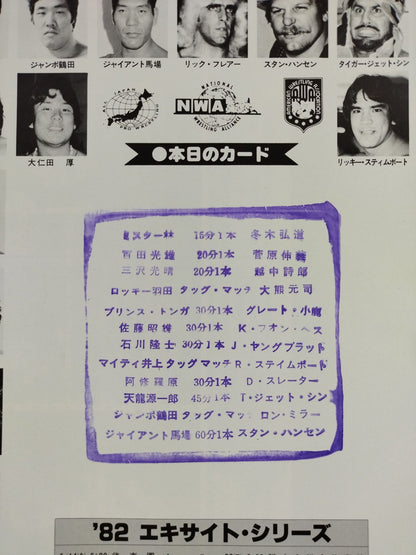 ジャンボ鶴田
ジャイアント馬場
リック・フレアー
スタン・ハンセン
タイガー・ジェット・シン
大仁田 厚
ALL JAPAN
PRO-WRESTLING
NATIONAL
NWA
WRESTLING ALLIANCE
リッキー・スティムボート
●本日のカード
ミスター林 15分1本 冬木弘道
百田光雄 20分1本 菅原伸義
三沢光晴 20分1本 越中詩郎
ロッキー羽田 タッグ・マッチ 大熊元司
プリンス・トンガ 30分1本 グレート・小鹿
佐藤昭雄 30分1本 K・フォン・ヘス
石川隆士 30分1本 J・ヤングブラッド
マイティ井上 タッグマッチ R・スティムボート
阿修羅原 30分1本 D・スレーター
天龍源一郎 45分1本 T・ジェット・シン
ジャンボ鶴田 タッグ・マッチ ロン・ミラー
ジャイアント馬場 60分1本 スタン・ハンセン
'82 エキサイト・シリーズ